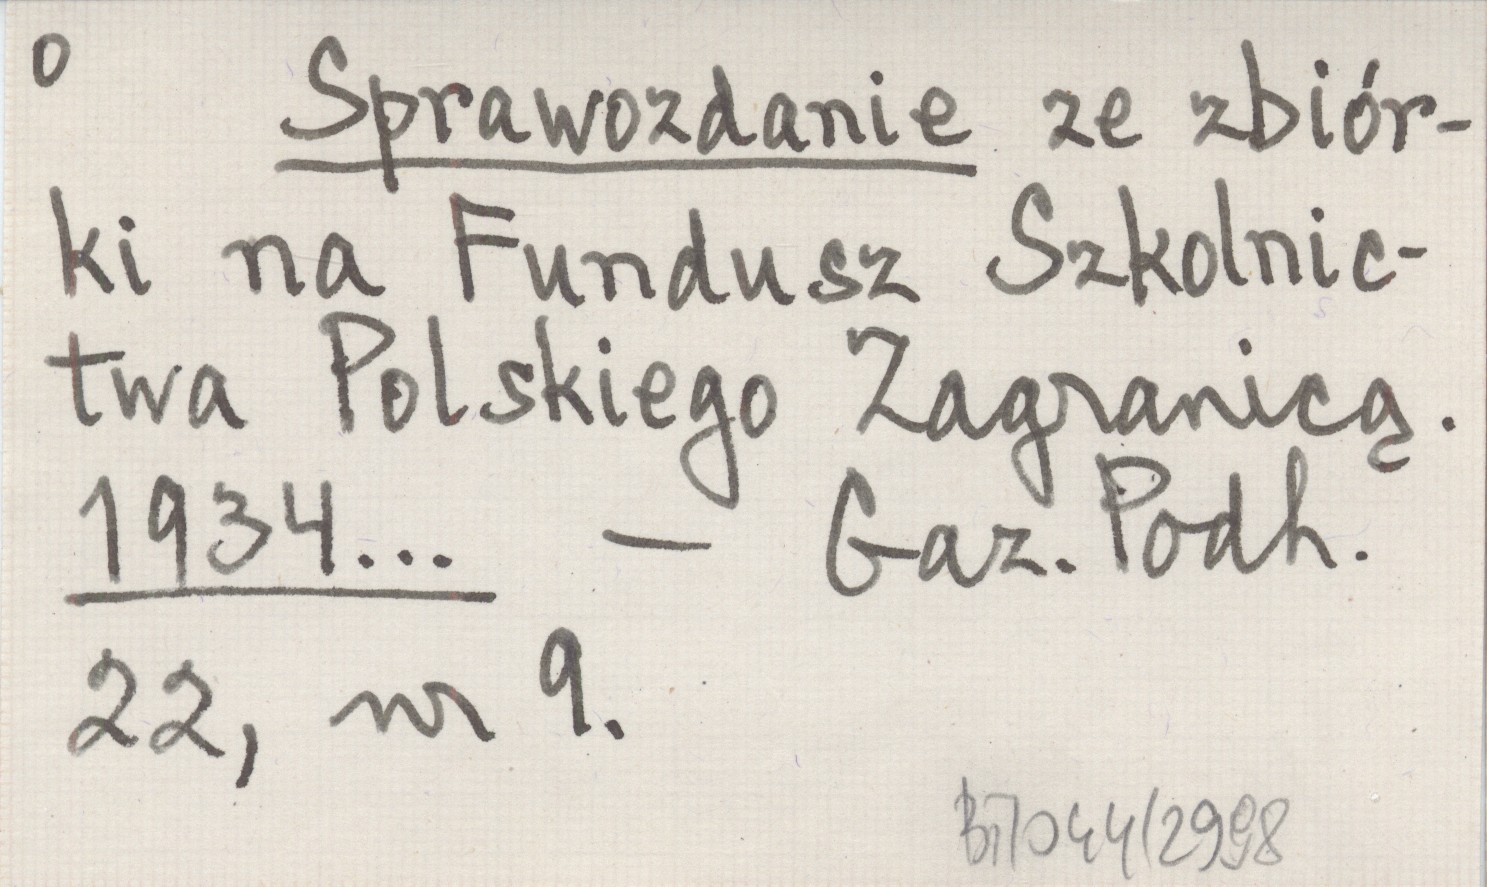 o Sprawozdanie ze zbiór-
ki na Fundusz Szkolnic-
twa Polskiego Zagranicą.
1934... — Gaz. Podh.
22, nr 9.